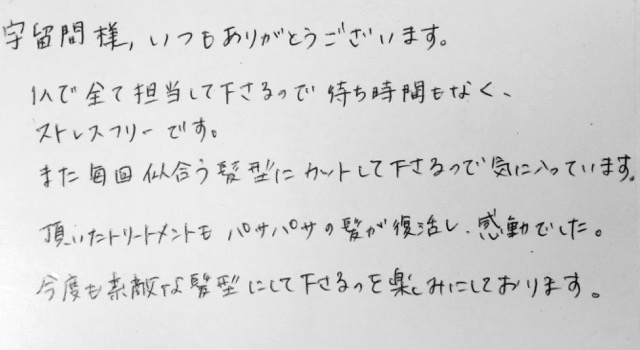 宇留間様，いつもありがとうございます。
1人で全て担当して下さるので待ち時間もなく、
ストレスフリーです。
また毎回似合う髪型にカットして下さるので気に入っています。
頂いたトリートメントもパサパサの髪が復活し、感動でした。
今度も素敵な髪型にして下さるのを楽しみにしております。